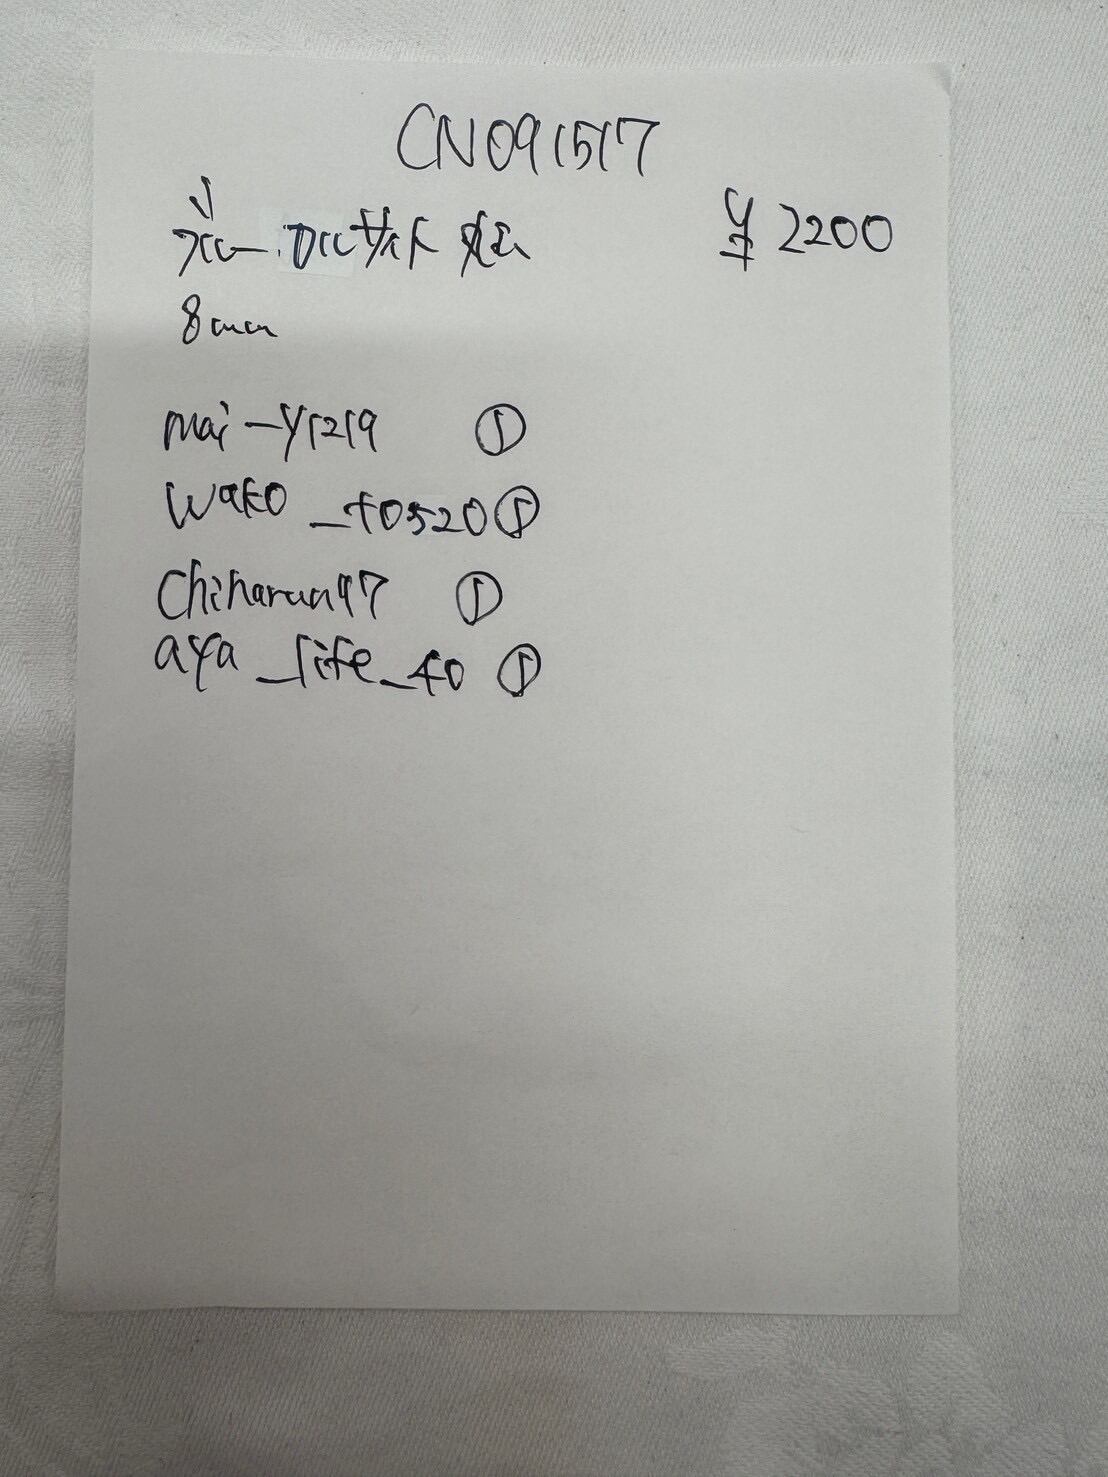 CN091517
¥2200
8mm
mai-y1219 ①
wako_t0520①
Chiharun97 ①
aya_life_40 ①